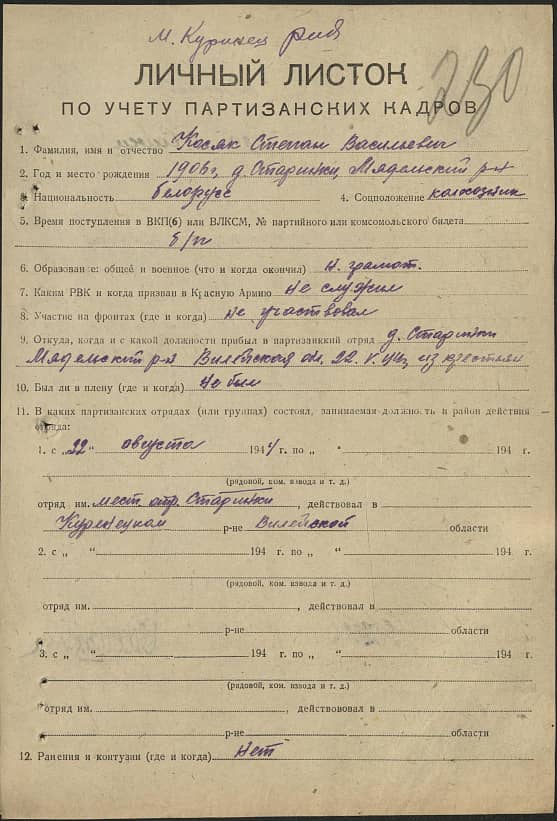 230
ЛИЧНЫЙ ЛИСТОК
ПО УЧЕТУ ПАРТИЗАНСКИХ КАДРОВ
1. Фамилия, имя и отчество Косяк Степан Васильевич
2. Год и место рождения 1906г, д. Старинки, Мядельский р-н
3. Национальность белорусс 4. Соцположение колхозник
5. Время поступления в ВКП(б) или ВЛКСМ, № партийного или комсомольского билета
б/п
6. Образование: общее и военное (что и когда окончил) н. грамот.
7. Каким РВК и когда призван в Красную Армию не служил
8. Участие на фронтах (где и когда) не участвовал
9. Откуда, когда и с какой должности прибыл в партизанский отряд д. Старинки
Мядельский р-н Вилейская обл. 22. из крестьян
10. Был ли в плену (где и когда) не был
11. В каких партизанских отрядах (или группах) состоял, занимаемая должность и район действия
отряда:
1. с „22" августа 194 г. по „ " 194 г.
(рядовой, ком. взвода и т. д.)
отряд им. мест. отр. Старинки, действовал в
Куренецком р-не Вилейской области
2. с „ " 194 г. по „ " 194 г.
(рядовой, ком. взвода и т. д.)
отряд им. , действовал в
р-не области
3. с „ " 194 г. по „ " 194 г.
(рядовой, ком. взвода и т. д.)
отряд им. , действовал в
р-не области
12. Ранения и контузии (где и когда) Нет